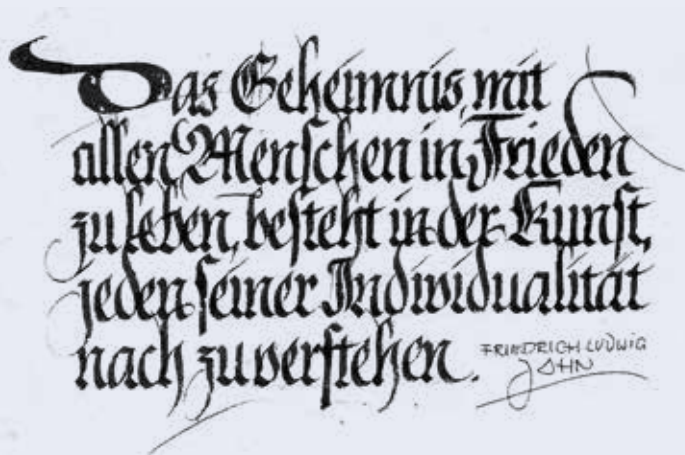 Das Geheimnis, mit
allen Menschen in Frieden
zu leben, besteht in der Kunst,
jeden seiner Individualität
nach zu verstehen.
FRIEDRICH LUDWIG
JAHN